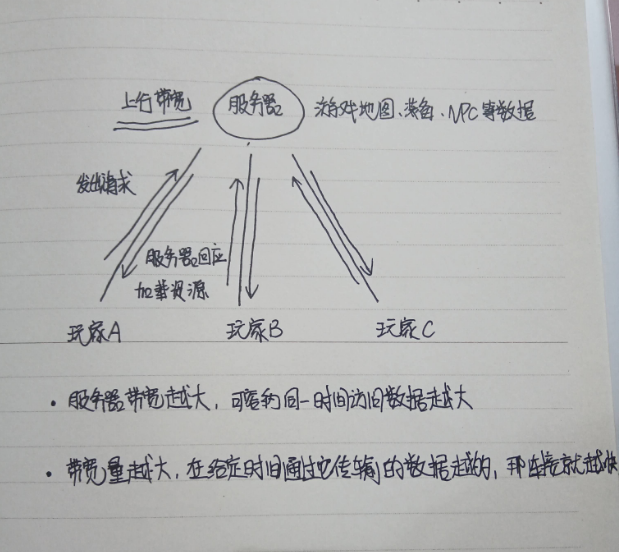 上行带宽
服务器
游戏地图、装备、NPC等数据
发出请求
服务器回应
加载资源
玩家A
玩家B
玩家C
· 服务器带宽越大，可容纳同一时间访问数据越大
· 带宽量越大，在给定时间通过它传输的数据越多，那连接就越快